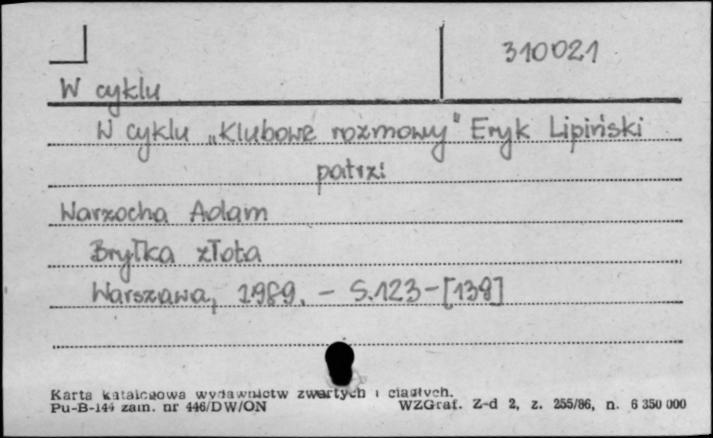 310021
W cyklu
W cyklu „Klubowe rozmowy" Eryk Lipiński
patrz:
Warzocha Adam
Bryłka złota
Warszawa, 1989. - S.123-[138]
Karta katalogowa wydawnictw zwartych i ciągłych.
Pu-B-144 zam. nr 446/DW/ON WZGraf. Z-d 2, z. 255/86, n. 6 350 000